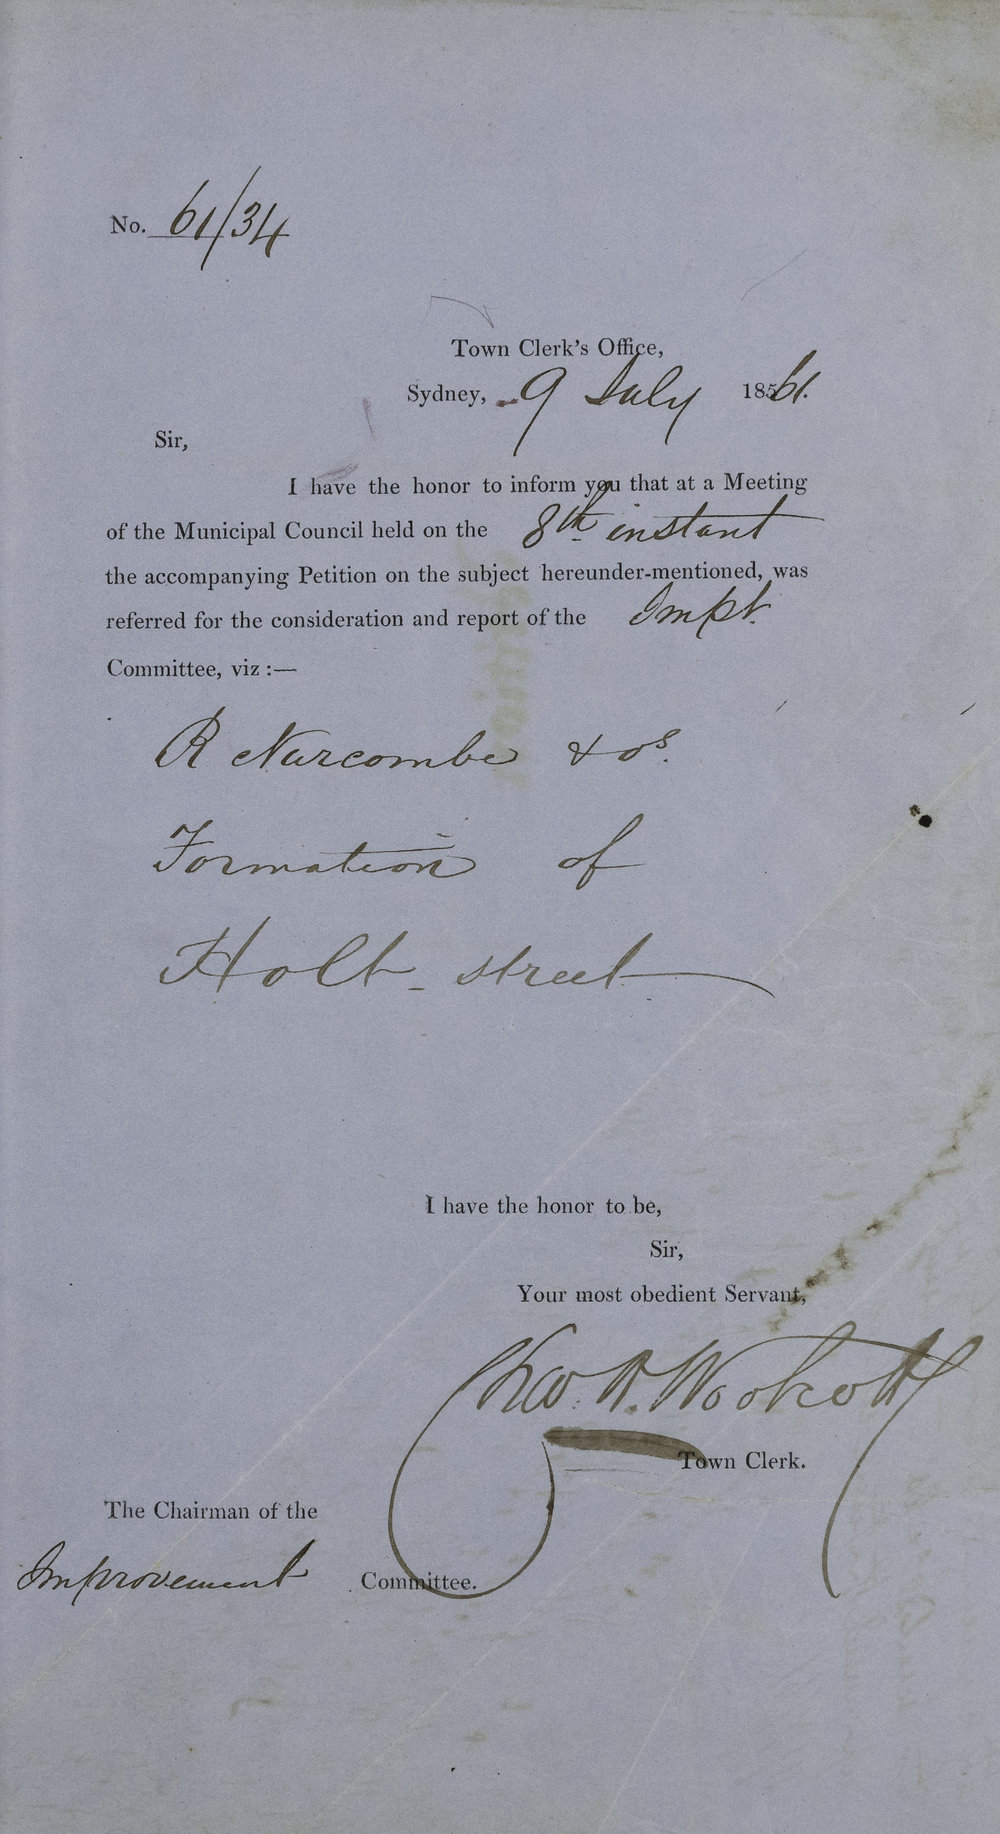 No. 61/34
Town Clerk's Office,
Sydney, 9 July 1861.
Sir,
I have the honor to inform you that at a Meeting
of the Municipal Council held on the 8th instant
the accompanying Petition on the subject hereunder-mentioned, was
referred for the consideration and report of the Impt.
Committee, viz :—
R Narcombe & os.
Formation of
Holt - street
I have the honor to be,
Sir,
Your most obedient Servant,
Chas. H. Woolcott
Town Clerk.
The Chairman of the
Improvement Committee.